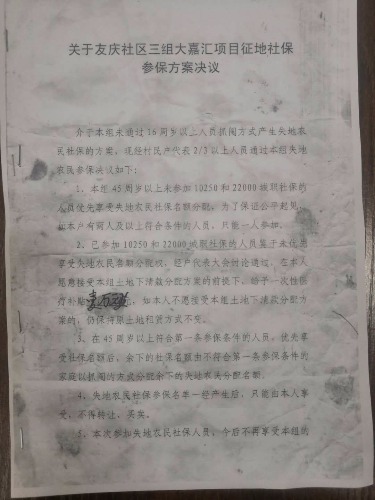 关于友庆社区三组大嘉汇项目征地社保
参保方案决议
介于本组未通过16周岁以上人员抓阄方式产生失地农
民社保的方案，现经村民户代表2/3以上人员通过本组失地
农民参保决议如下：
1、本组45周岁以上未参加10250和22000城职社保的
人员优先享受失地农民社保名额分配，为了保证公平起见，
如本户有两人及以上符合条件的人员，只能一人参加。
2、已参加10250和22000城职社保的人员鉴于未优先
享受失地农民名额分配权，经户代表大会讨论通过，在本人
愿意接受本组土地下清款分配方案的前提下，给予一次性医
疗补贴 元，如本人不愿接受本组土地下清款分配方
案的，仍保持原土地租赁方式不变。
3、在45周岁以上符合第一条参保条件的人员，优先享
受社保名额后，余下的社保名额由不符合第一条参保条件的
家庭以抓阄的方式分配余下的失地农夫分配名额。
4、失地农民社保参保名单一经产生后，只能由本人享
受，不得转让、买卖。
5、本次参加失地农民社保人员，今后不再享受本组的